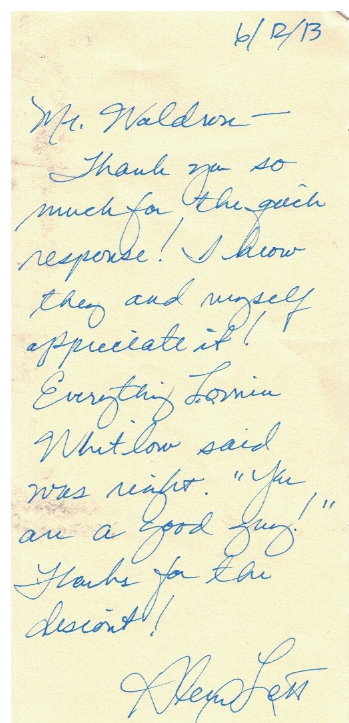 6/12/13
Mr. Waldron—
Thank you so
much for the quick
response! I know
they and myself
appreciate it!
Everything
Whitlow said
was right. "You
are a good guy!"
Thanks for the
desiont!
Lett